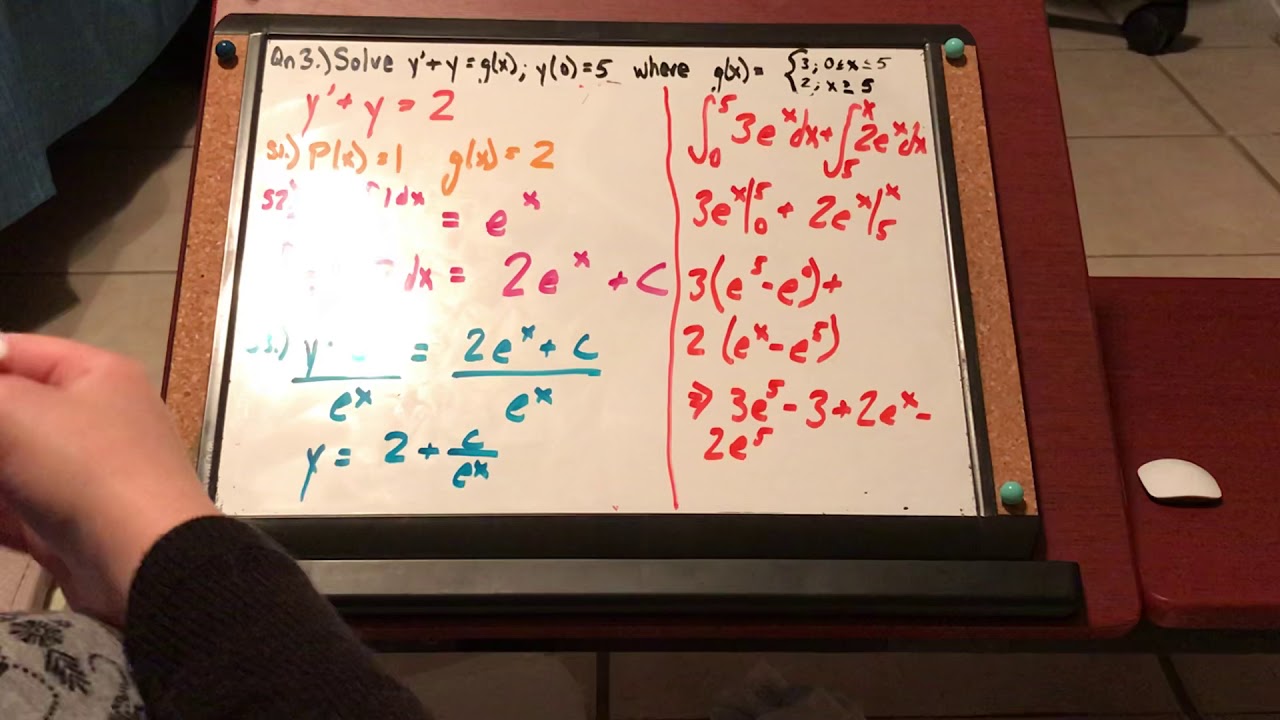 Qn 3.) Solve y' + y = g(x); y(0) = 5 where g(x) = { 3; 0 ≤ x ≤ 5
2; x ≥ 5
y' + y = 2
S1.) P(x) = 1 g(x) = 2
S2.) 1dx = e^x
dx = 2e^x + C
3.) y = 2e^x + C
e^x e^x
y = 2 + C/e^x
∫_0^5 3e^x dx + ∫_5^x 2e^x dx
3e^x |_0^5 + 2e^x |_5^x
3(e^5 - e^0) +
2(e^x - e^5)
⇒ 3e^5 - 3 + 2e^x -
2e^5